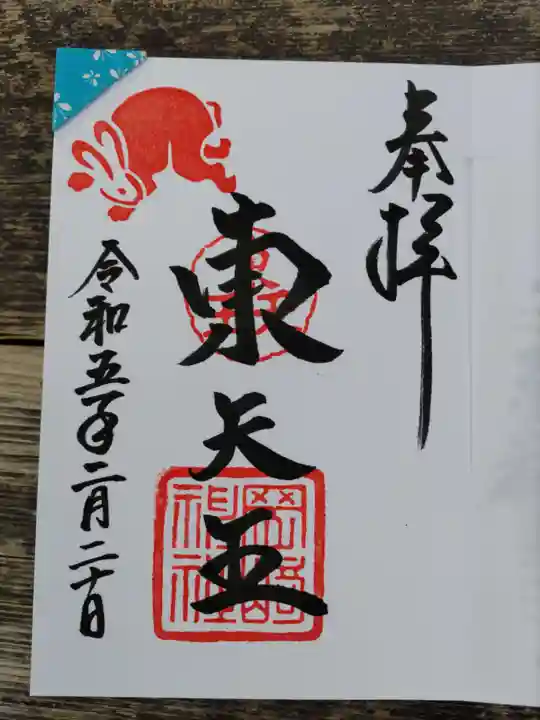 奉拝
東天王
岡﨑神社
令和五年二月二十日